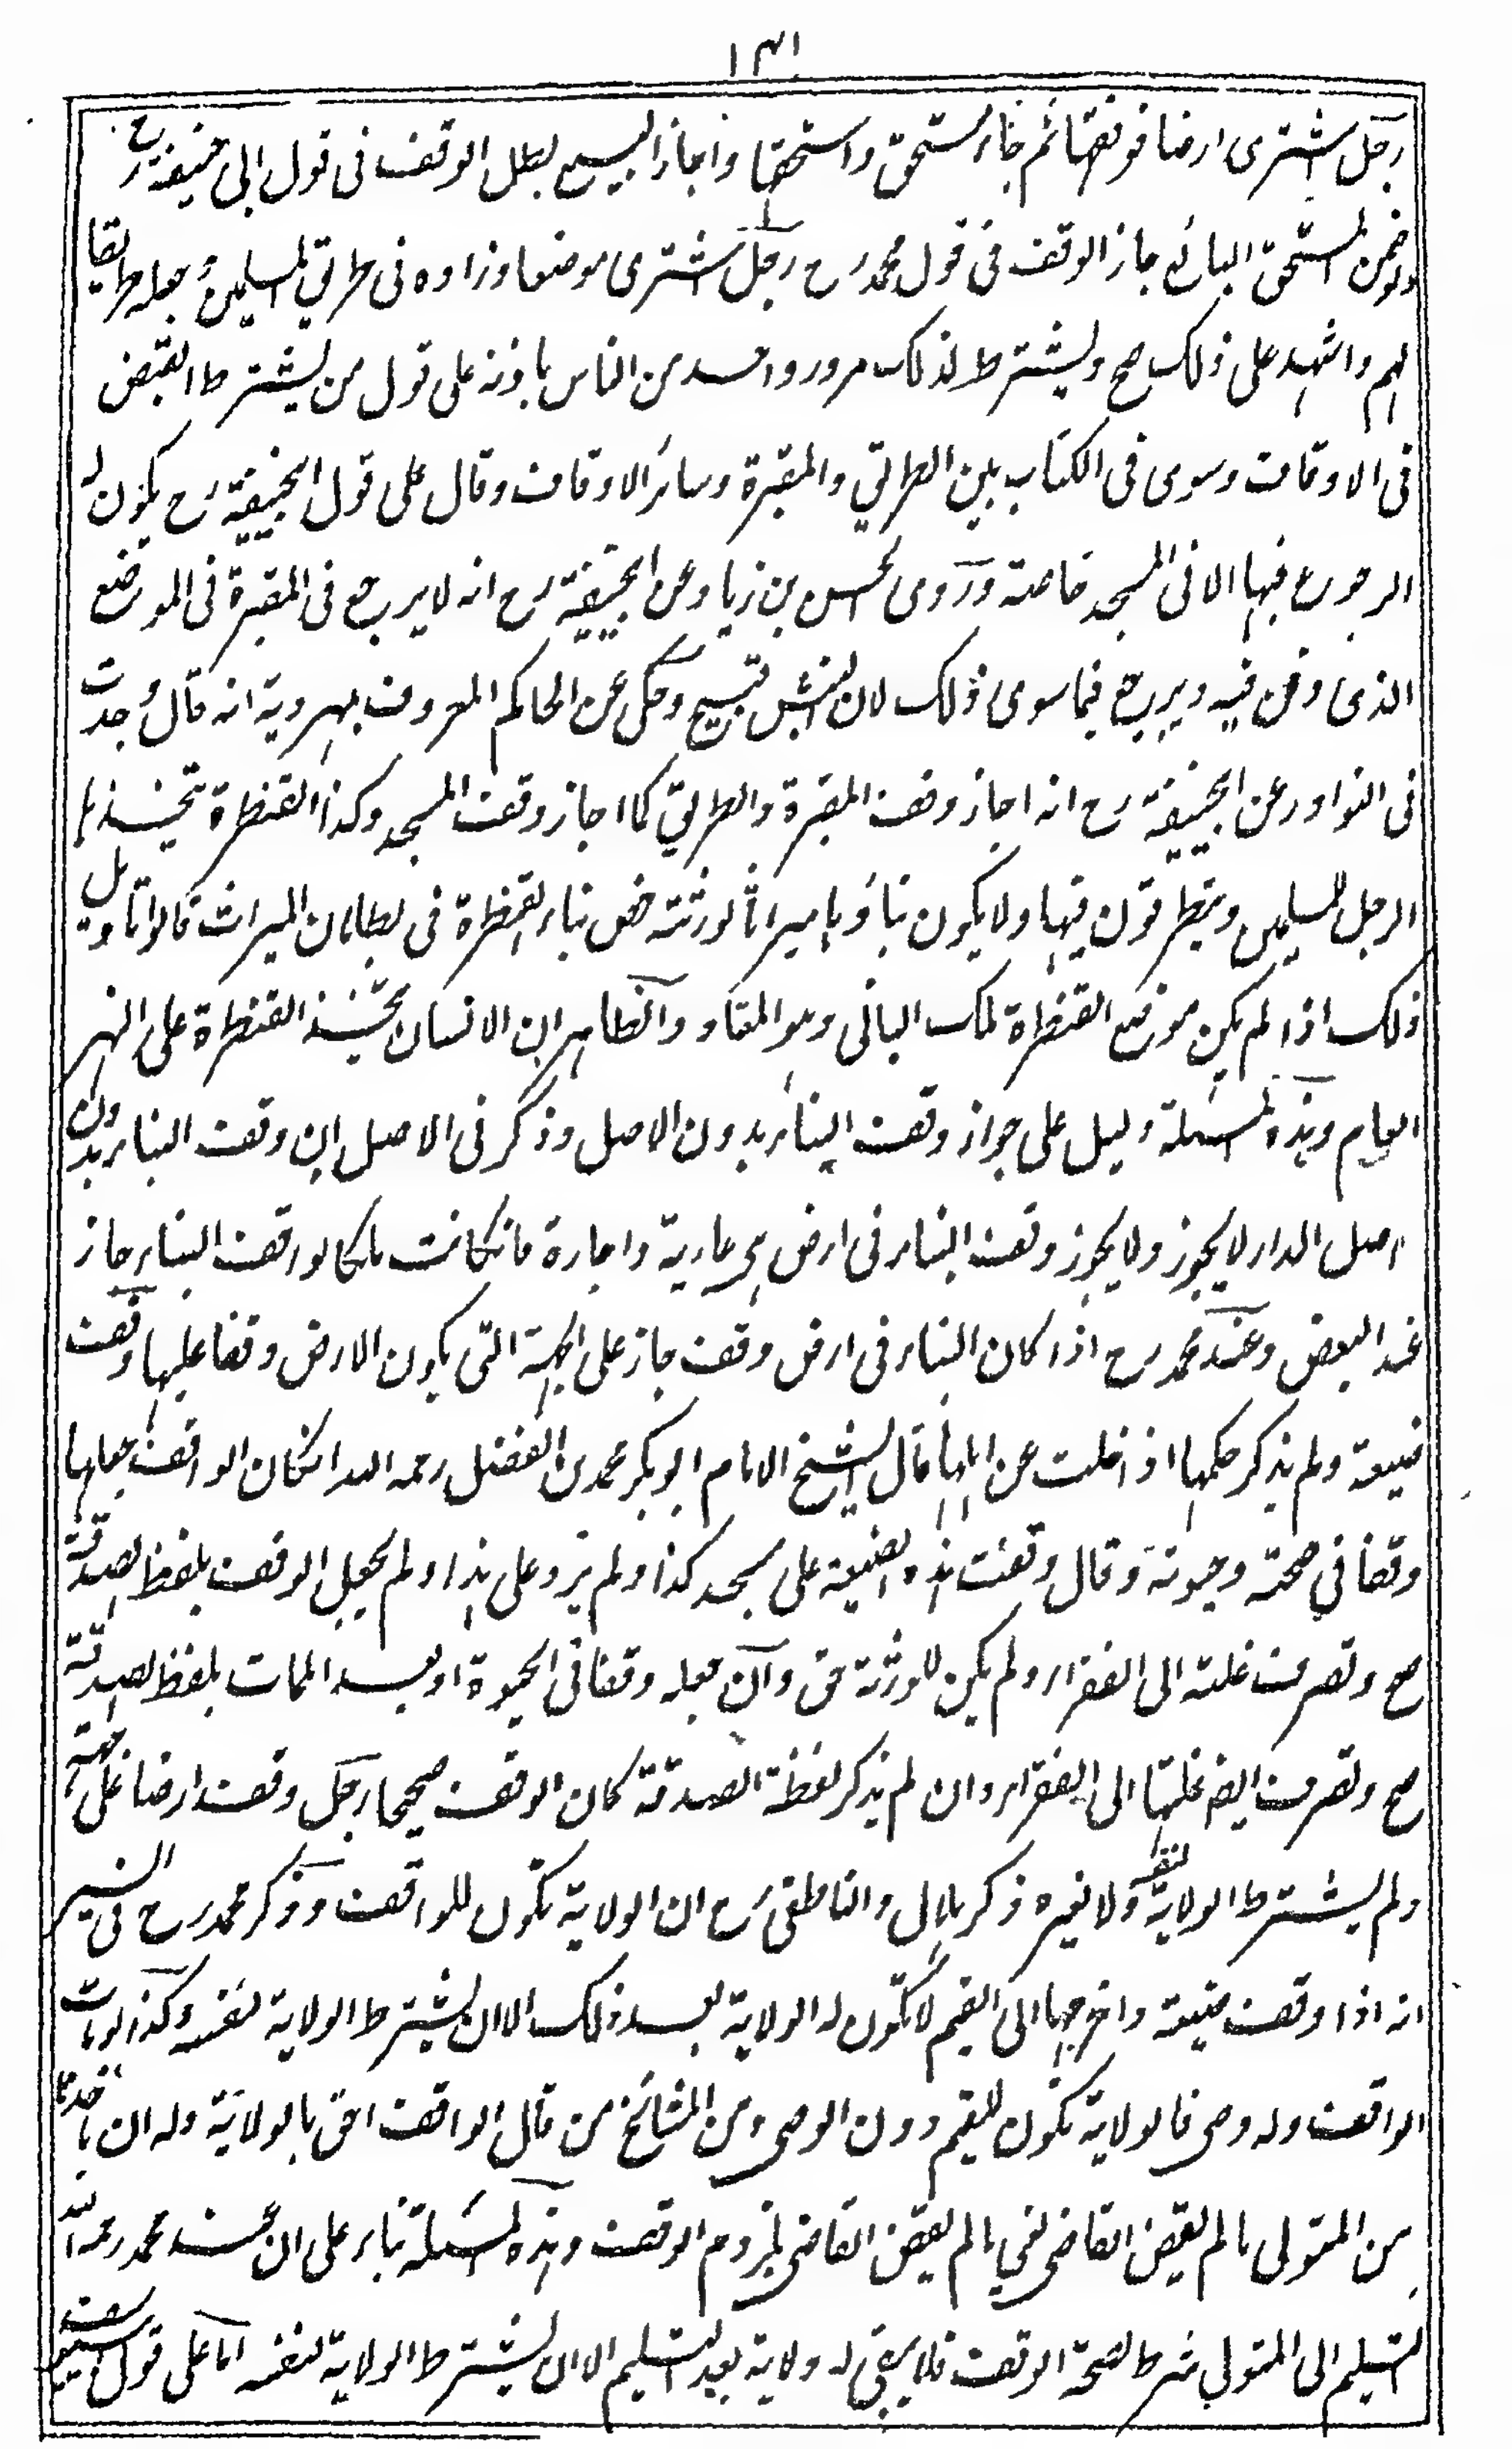 ١٣١
رجل اشترى ارضا فوقفها ثم جاء المستحق واستحقها واجاز البيع بطل الوقف فى قول ابى حنيفة رح
ولو ضمن المستحق البائع جاز الوقف فى قول محمد رح رجل اشترى موضعا وزاده فى طريق المسلمين وجعله طريقا
لهم واشهد على ذلك صح ويشترط لذلك مرور واحد من الناس باذنه على قول من يشترط القبض
فى الاوقاف وسوى فى الكتاب بين الطريق والمقبرة وسائر الاوقاف وقال على قول ابيحنيفة رح يكون له
الرجوع فيها الا فى المسجد خاصة وروى الحسن بن زياد عن ابيحنيفة رح انه لا يرجع فى المقبرة فى الموضع
الذى دفن فيه ويرجع فيما سوى ذلك لان النبش قبيح وحكى عن الحاكم المعروف بمهروية انه قال وجدت
فى النوادر عن ابيحنيفة رح انه اجاز وقف المقبرة والطريق كما اجاز وقف المسجد وكذا القنطرة يتخذها
الرجل للمسلمين ويتطرقون فيها ولا يكون بناؤها ميراثا لورثته خص بناء القنطرة فى بطلان الميراث قالوا تاويل
ذلك اذا لم يكن موضع القنطرة ملك البانى وهو المعتاد والظاهر ان الانسان يتخذ القنطرة على النهر
العام وهذه المسئلة دليل على جواز وقف البناء بدون الاصل وذكر فى الاصل ان وقف البناء بدون
اصل الدار لا يجوز ولا يجوز وقف البناء فى ارض هى عارية واجارة فانكانت ملكا لواقف البناء جاز
عند البعض وعند محمد رح اذا كان البناء فى ارض وقف جاز على الجهة التى يكون الارض وقفا عليها وقف
ضيعة ولم يذكر حكمها اذ اخلت عن اهلها قال الشيخ الامام ابو بكر محمد بن الفضل رحمه الله انكان الواقف جعلها
وقفا في صحته وحيوته وقال وقفت هذه الضيعة على مسجد كذا ولم يزد على هذا ولم يجعل الوقف بلفظ الصدقة
صح وتصرف غلته الى الفقراء ولم يكن للورثة حق وان جعله وقفا فى الحيوة او بعد الممات بلفظ الصدقة
صح وتصرف ايضا غلتها الى الفقراء وان لم يذكر لفظة الصدقة كان الوقف صحيحا رجل وقف ارضا على جهة
ولم يشترط الولاية لنفسه ولا لغيره ذكر هلال والناطفى رح ان الولاية تكون للواقف وذكر محمد رح فى السير
انه اذا وقف ضيعة واخرجها الى القيم لا تكون له الولاية بعد ذلك الا ان يشترط الولاية لنفسه وكذا لو مات
الواقف وله وصى فالولاية تكون للقيم دون الوصى ومن المشائخ من قال الواقف احق بالولاية وله ان ياخذها
من المتولى ما لم يقض القاضى لغي ما لم يقض القاضى بلزوم الوقف وهذه المسئلة بناء على ان عند محمد رحمه الله
التسليم الى المتولى شرط لصحة الوقف فلا يبقى له ولاية بعد التسليم الا ان يشترط الولاية لنفسه اما على قول